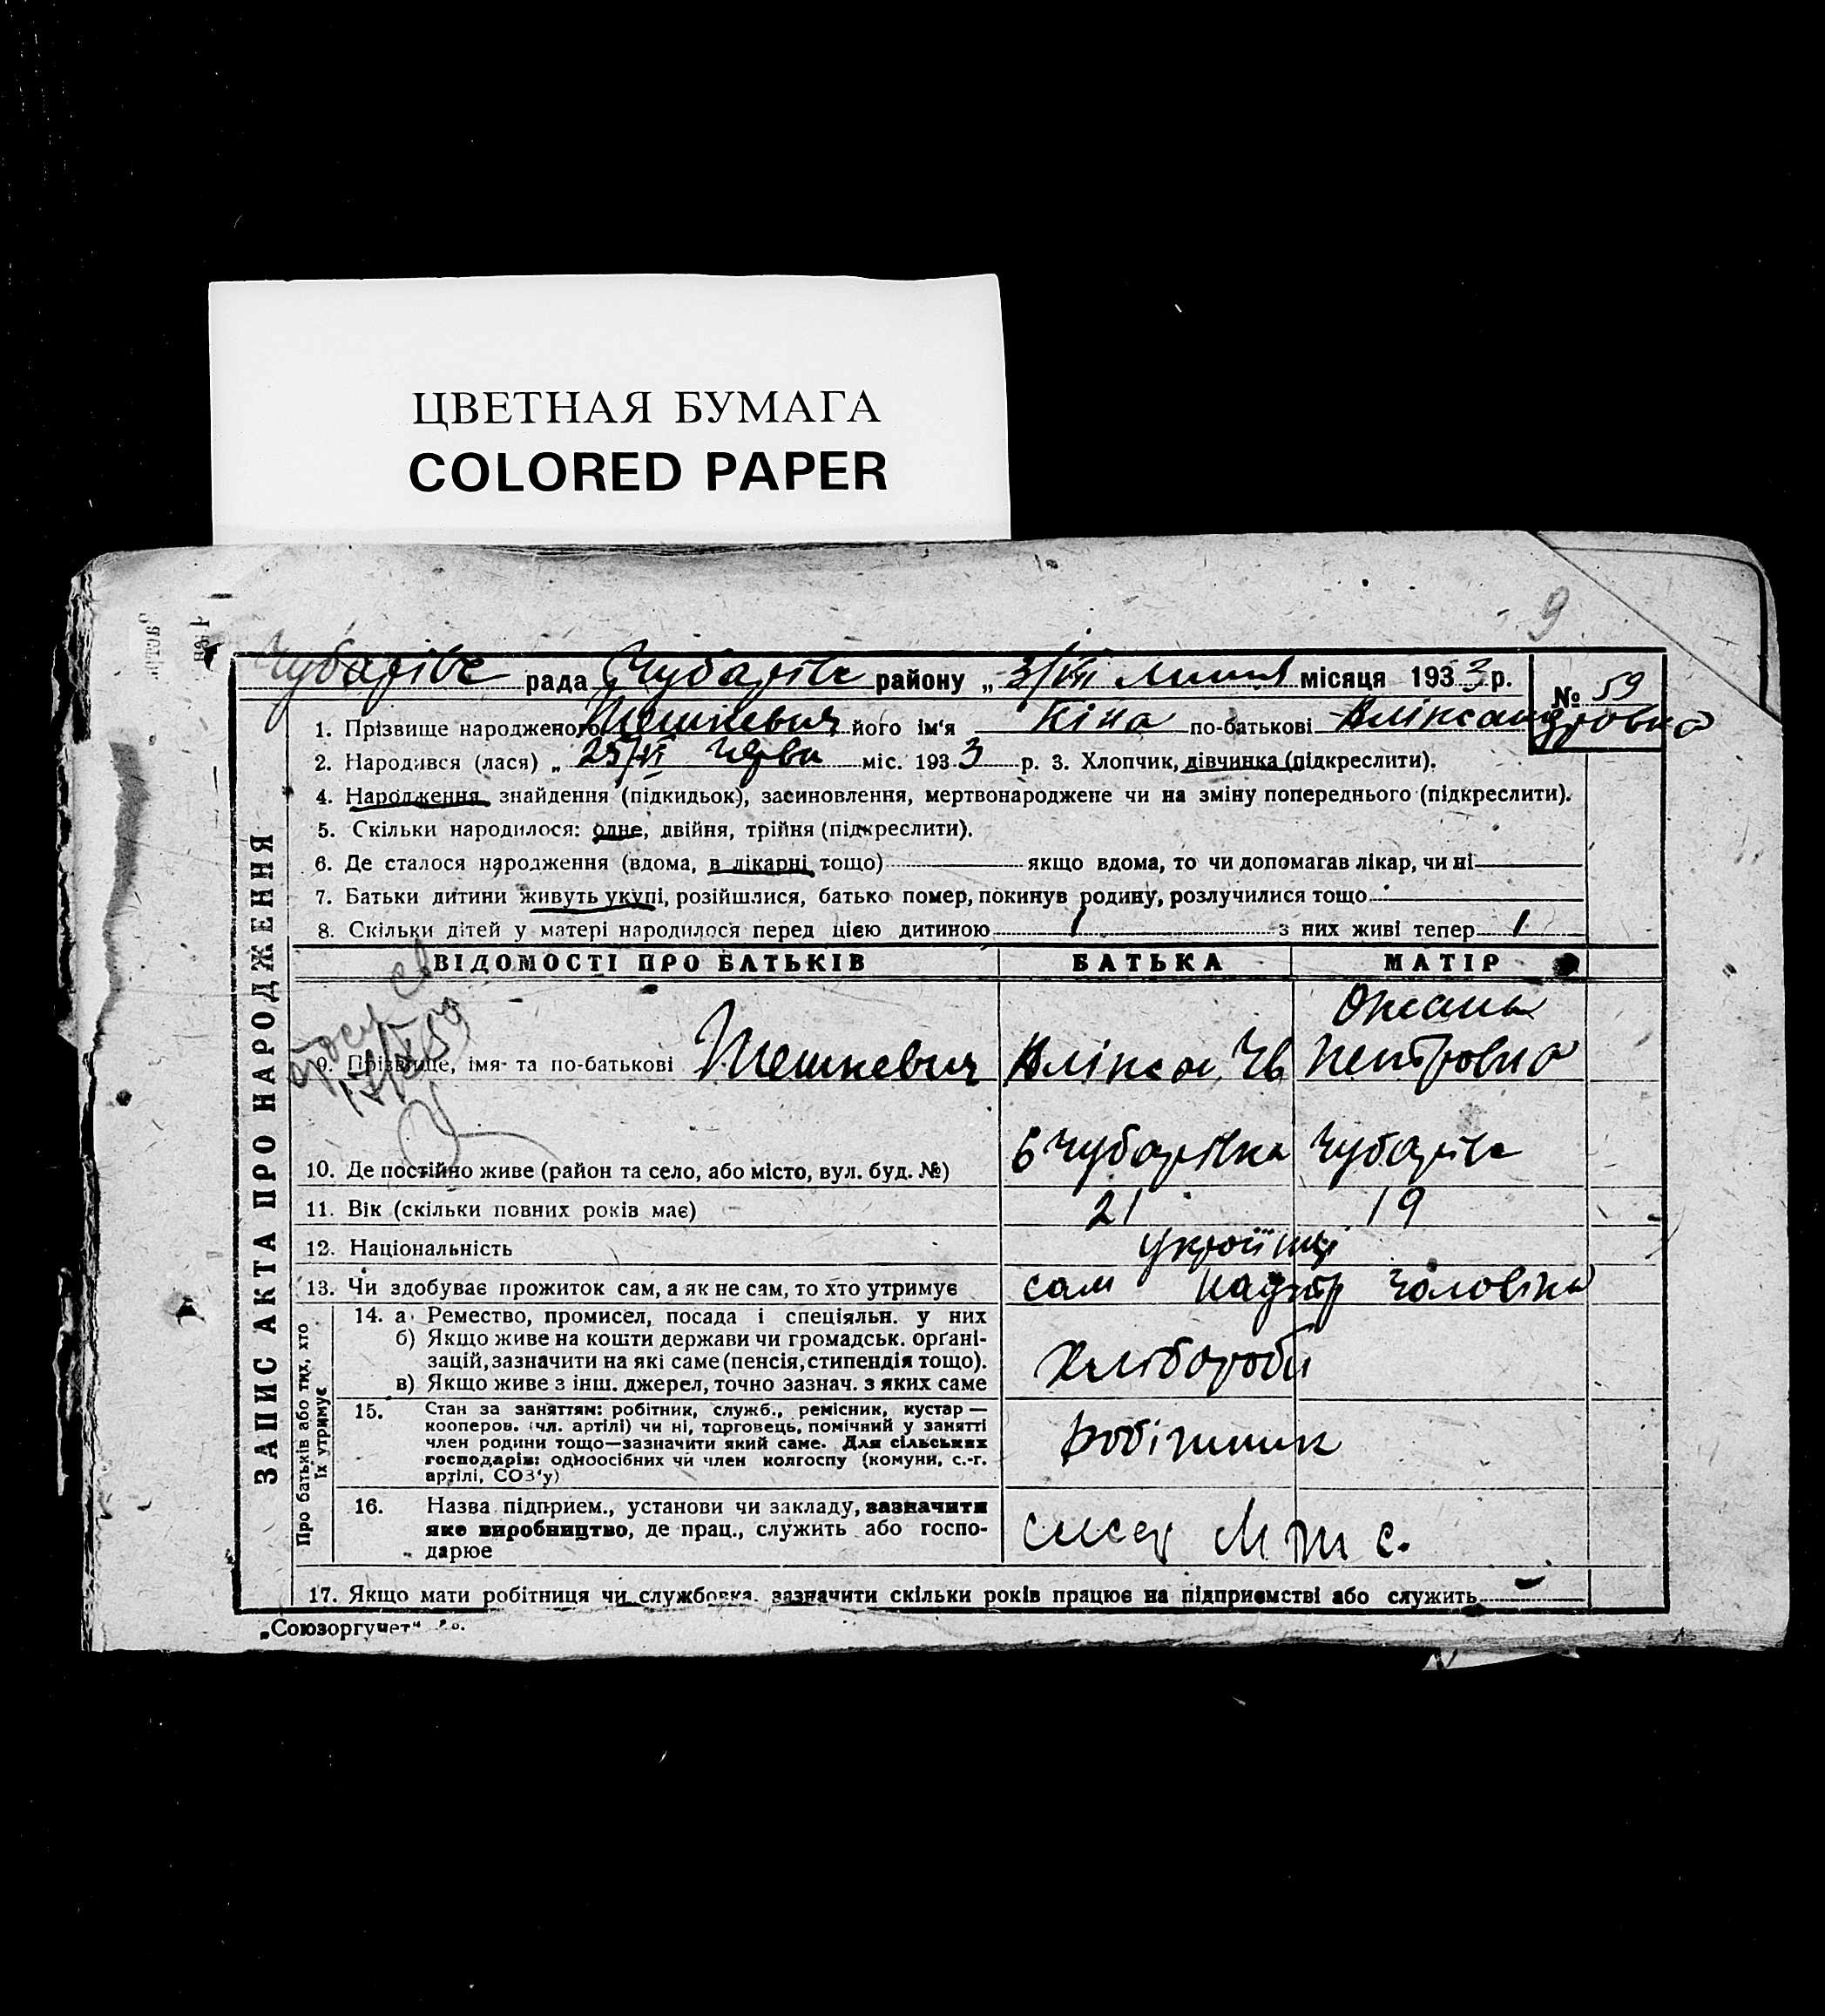 ЦВЕТНАЯ БУМАГА
COLORED PAPER
9
рада района „ 3/VII місяця 1933 р. № 59
1. Прізвище народженого Шешкевич його ім'я Кіна по-батькові Аліксандровна
2. Народився (лася) „ 25/VI черв міс. 1933 р. 3. Хлопчик, дівчинка (підкреслити).
4. Народження, знайдення (підкидьок), засиновлення, мертвонароджене чи на зміну попереднього (підкреслити).
5. Скільки народилося: одне, двійня, трійня (підкреслити).
6. Де сталося народження (вдома, в лікарні тощо) якщо вдома, то чи допомагав лікар, чи ні
7. Батьки дитини живуть укупі, розійшлися, батько помер, покинув родину, розлучилися тощо
8. Скільки дітей у матері народилося перед цією дитиною 1 з них живі тепер 1
ЗАПИС АКТА ПРО НАРОДЖЕННЯ
ВІДОМОСТІ ПРО БАТЬКІВ БАТЬКА МАТІР
Оксана
9. Прізвище, імя та по-батькові Шешкевич Алікса Ів Петровна
10. Де постійно живе (район та село, або місто, вул. буд. №) Чубарівка
11. Вік (скільки повних років має) 21 19
12. Національність україїнці
13. Чи здобуває прожиток сам, а як не сам, то хто утримує сам чоловіка
Про батьків або тих, хто
їх утримує
14. а Ремество, промисел, посада і спеціяльн. у них
б) Якщо живе на кошти держави чи громадськ. орґані-
зацій, зазначити на які саме (пенсія, стипендія тощо).
в) Якщо живе з інш. джерел, точно зазнач. з яких саме
Хлібороби
15. Стан за заняттям: робітник, служб., ремісник, кустар —
кооперов. (чл. артілі) чи ні, торговець, помічний у занятті
член родини тощо—зазначити який саме. Для сільських
господарів: одноосібних чи член колгоспу (комуни, с.-г.
артілі, СОЗ'у)
робітник
16. Назва підприєм., установи чи закладу, зазначити
яке виробництво, де прац., служить або госпо-
дарює
М Т С.
17. Якщо мати робітниця чи службовка, зазначити скільки років працює на підприємстві або служить
„Союзоргучет"